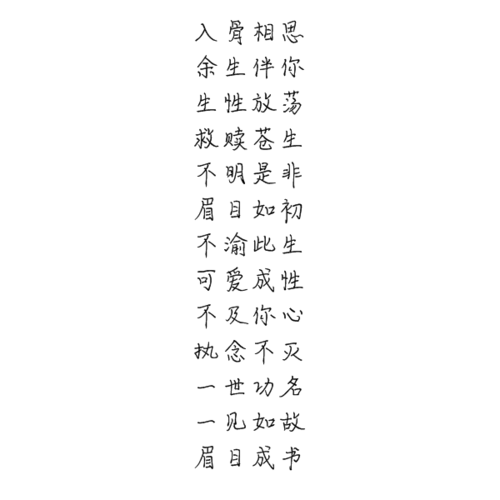 入骨相思
余生伴你
生性放荡
救赎苍生
不明是非
眉目如初
不渝此生
可爱成性
不及你心
执念不灭
一世功名
一见如故
眉目成书